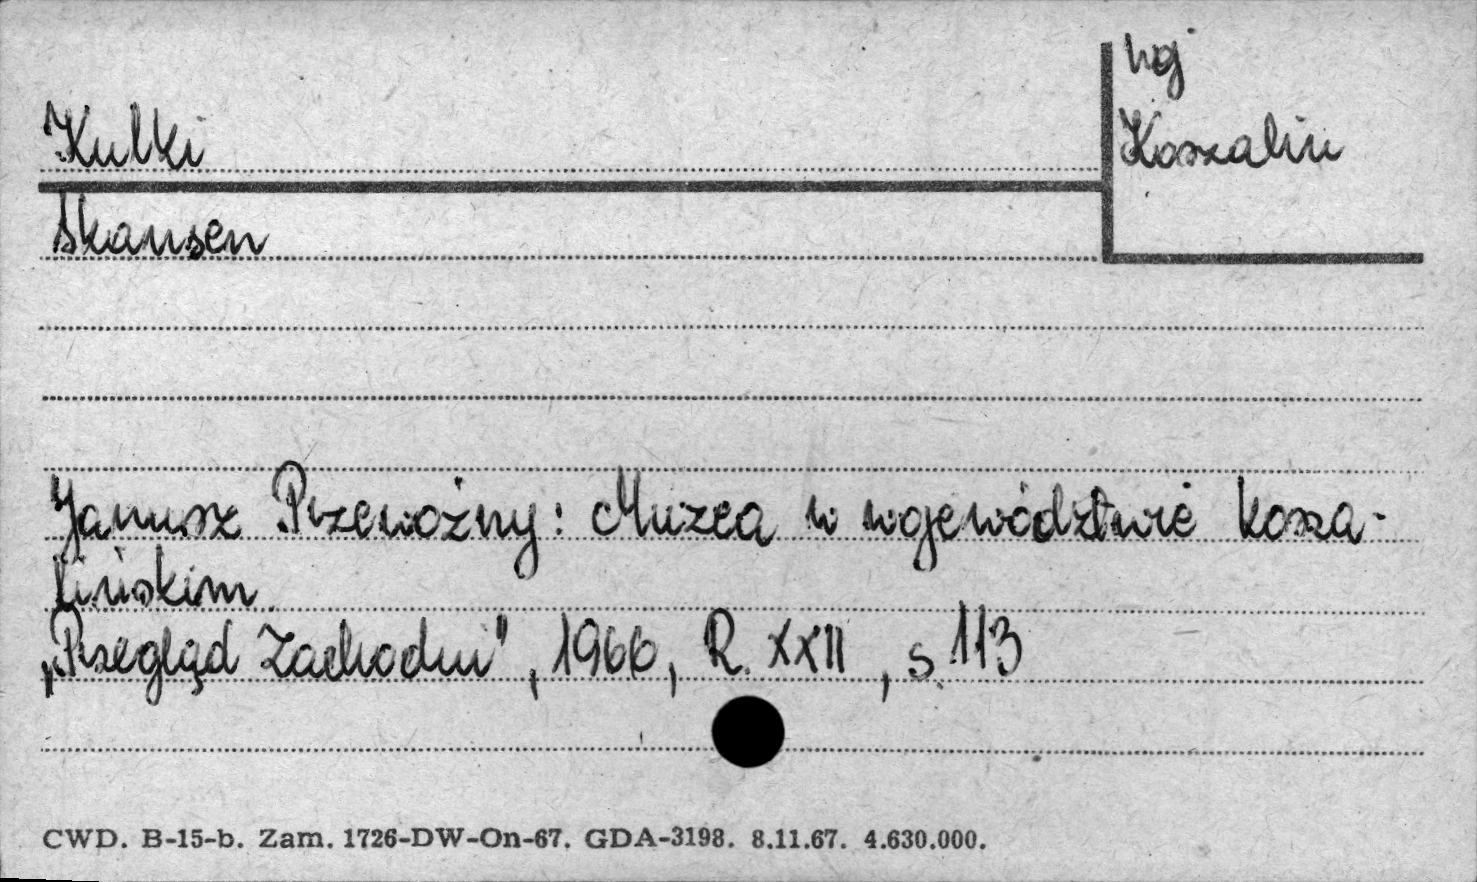 woj
Koszalin
Kulki
Skansen
Janusz Przewoźny: Muzea w województwie kosza-
lińskim
„Przegląd Zachodni", 1966, R. XXII, s. 113
CWD. B-15-b. Zam. 1726-DW-On-67. GDA-3198. 8.11.67. 4.630.000.